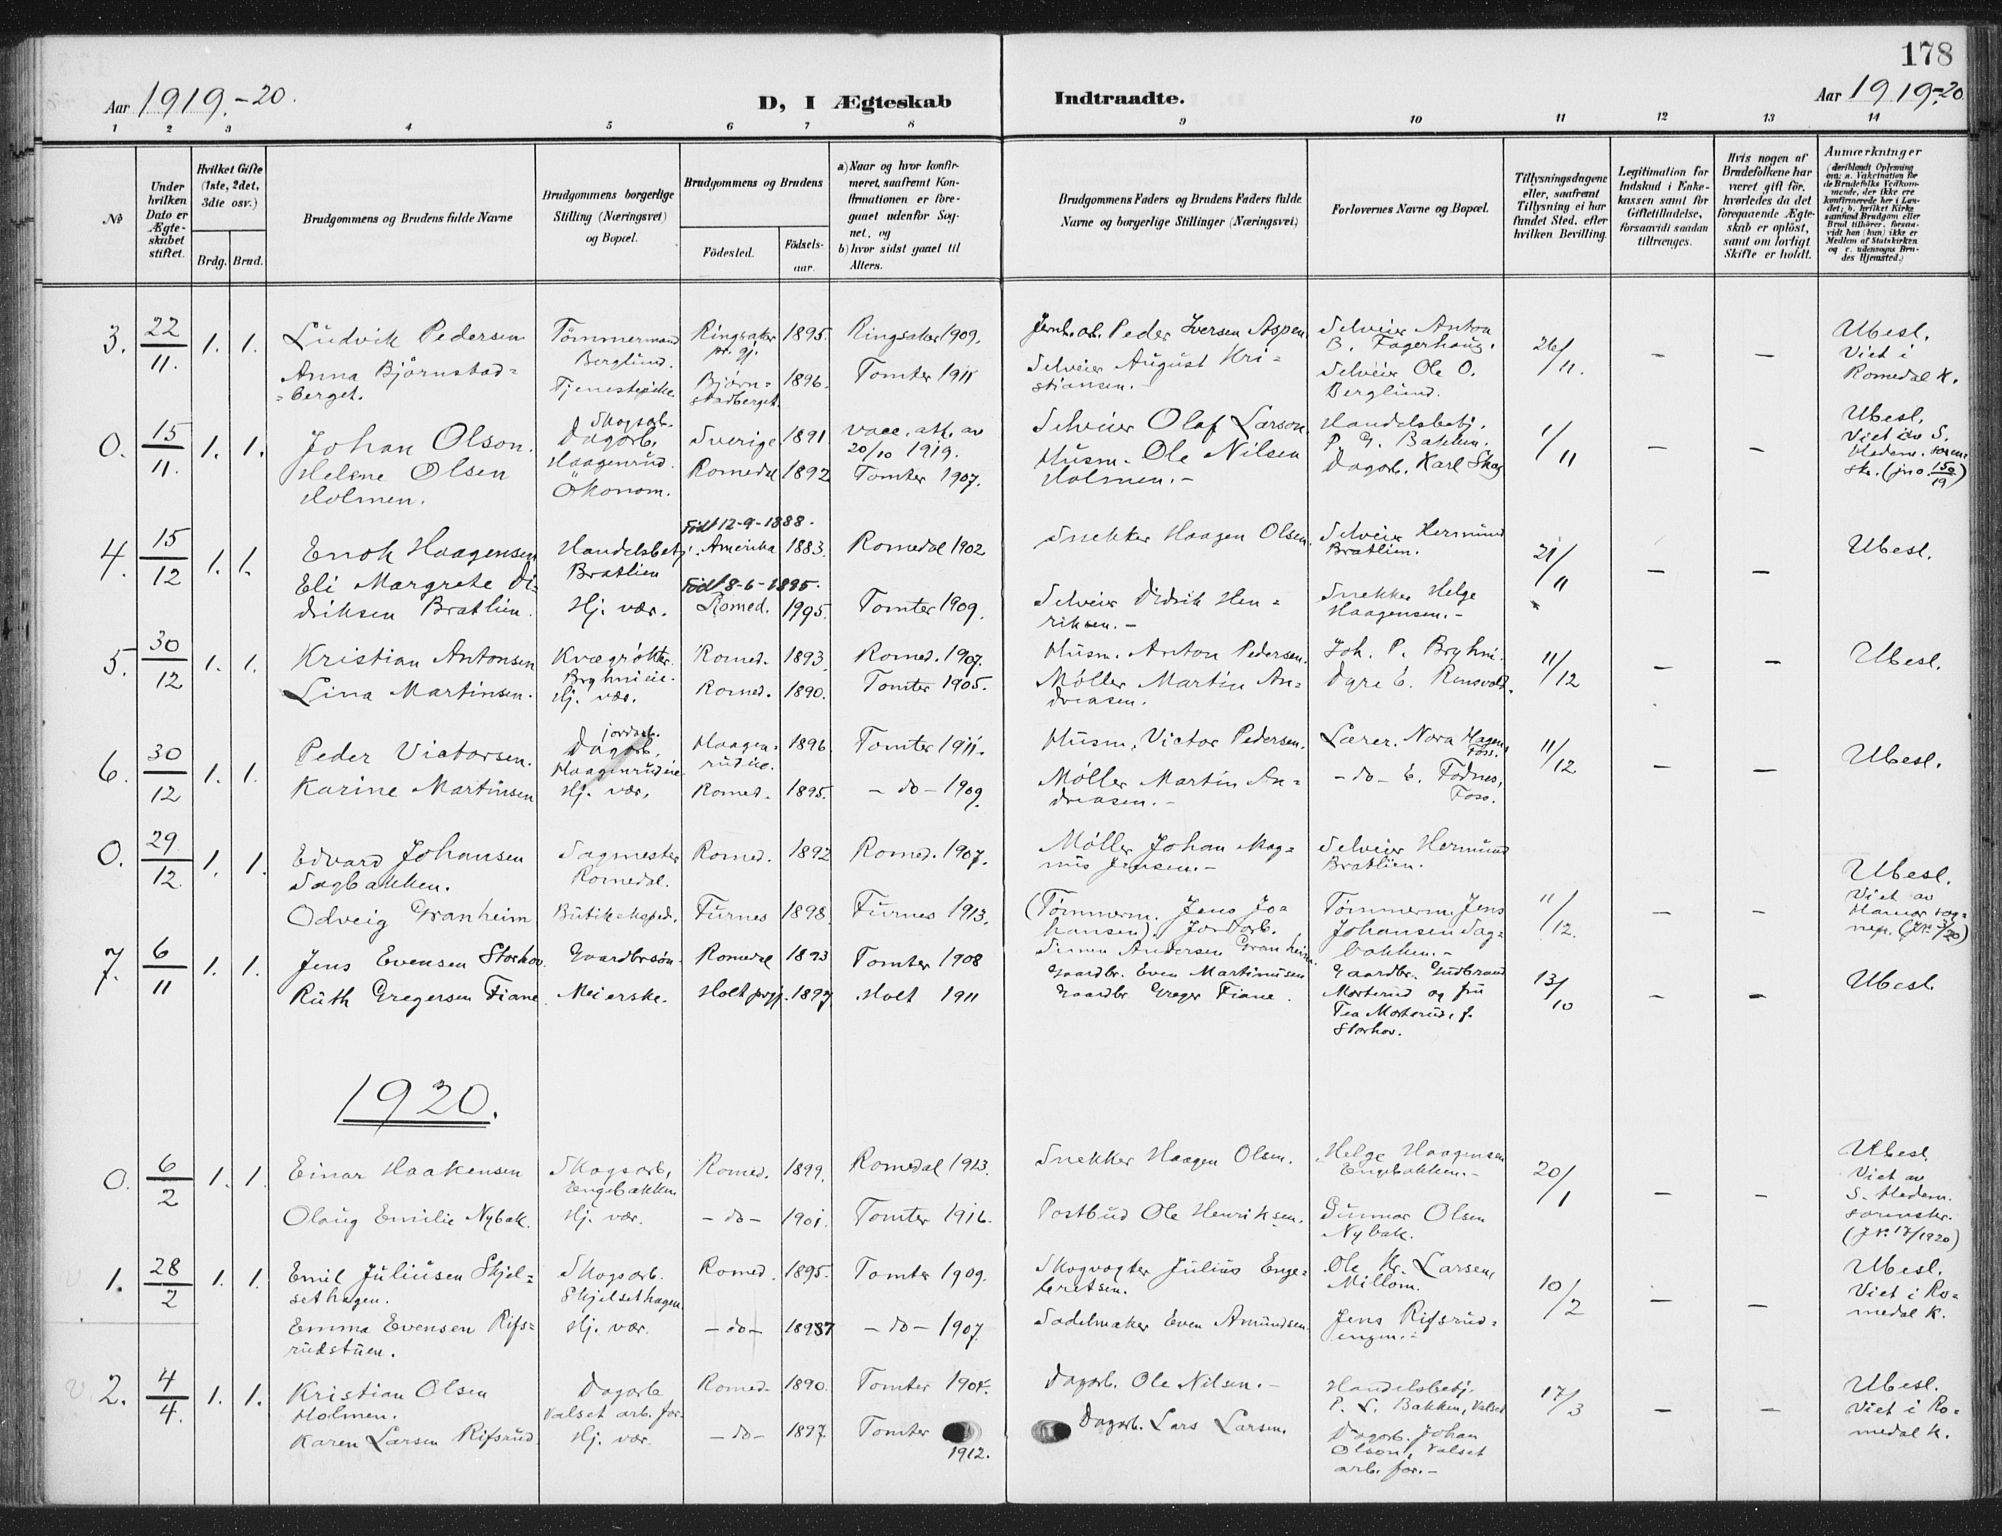 178
Aar 1919.-20.
D, I Ægteskab Indtraadte.
Aar 1919.-20.
1 2 3 4 5 6 7 8 9 10 11 12 13 14
No
Under hvilken Dato er Ægteskabet stiftet.
Hvilket Gifte (1ste, 2det, 3die osv.)
Brdg. Brud.
Brudgommens og Brudens fulde Navne
Brudgommens borgerlige Stilling (Næringsvei) og Bopæl.
Brudgommens og Brudens
Födested. Födsels-aar.
a) Naar og hvor konfirmeret, saafremt Konfirmationen er foregaaet udenfor Sognet, og
b) hvor sidst gaaet til Alters.
Brudgommens Faders og Brudens Faders fulde Navne og borgerlige Stillinger (Næringsvei)
Forlovernes Navne og Bopæl.
Tillysningsdagene eller, saafremt Tillysning ei har fundet Sted, efter hvilken Bevilling.
Legitimation for Indskud i Enkekassen samt for Giftetilladelse, forsaavidt saadan tiltrænges.
Hvis nogen af Brudefolkene har været gift før, hvorledes da det foregaaende Ægteskab er opløst, samt om lovligt Skifte er holdt.
Anmærkninger
3. 22/11. 1. 1. Ludvik Pedersen Tømmermand Berglund. Ringsaker pr. gj. 1895. Ringsaker 1909. Jernb.arb. Peder Iversen Aspen Selveier Anton B. Fagerhaug. 26/11. – – Ubesl. Viet i Romedal K.
Anna Bjørnstad=berget. Tjenestepike. Bjørnstadberget. 1896. Tomter 1911 Selveier August Kristiansen.- Selveier Ole O. Berglund.
0. 15/11. 1. 1. Johan Olson. Skogsarb. Dagarb. Haagenrud. Sverige 1891 vacc. att. av 20/10 1919. Selveier Olaf Larson. Handelsbetj. P. G. Bakken. 1/11 – – Ubesl. Viet av S. Hedem. sorenskr. (jno. 150/19)
Helene Olsen Holmen. Økonom. Romedal 1892 Tomter 1907. Husm. Ole Nilsen Holmen.- Dagarb. Karl Skog
4. 15/12 1. 1. Enok Haagensen Handelsbetj. Bratlien Født 12-9-1888. Amerika 1883. Romedal 1902 Snekker Haagen Olsen. Selveier Hermund Bratlien. 21/11 – – Ubesl.
Eli Margrete Didriksen Bratlien. Hj. vær. Født 8-6-1895. Romed. 1995 Tomter 1909. Selveier Didrik Henriksen.- Snekker Helge Haagensen.-
5. 30/12 1. 1. Kristian Antonsen Kvægrøkter. Bryhnieie. Romed. 1893. Romed. 1907. Husm. Anton Pedersen. Joh. P. Bryhni. 11/12 – – Ubesl.
Lina Martinsen. Hj. vær. Romed. 1890. Tomter 1905. Møller Martin Andreasen. Dyre E. Rensvold.
6. 30/12 1. 1. Peder Victorsen. jordarb. Dagarb. Haagenrudeie Haagenrudeie. 1896. Tomter 1911. Husm. Victor Pedersen. Lærer. Nora Hagen, Foss. 11/12 – – Ubesl.
Karine Martinsen Hj. vær. Romed. 1895. – do – 1909. Møller Martin Andreasen.- – do – E. Fodnes, Foss.
0. 29/12 1. 1. Edvard Johansen Sagbakken. Sagmester Romedal. Romed. 1892 Romed. 1907. Møller Johan Magnus Jensen.- Selveier Hermund Bratlien. Ubesl. Viet av Hamar sognepr.
Odveig Granheim Butikeksped. Furnes 1898. Furnes 1913. (Tømmerm. Jens Johansen). Jordarb. Simen Andersen Granheim. Tømmerm. Jens Johansen Sagbakken.- 11/12. – –
7. 6/11 1. 1. Jens Evensen Storhov. Gaardbrsøn. Romedal 1893 Tomter 1908 Gaardbr. Even Martinusen Gaardbr. Gudbrand Morterud og fru Tea Morterud, f. Storhov. 13/10 – – Ubesl.
Ruth Gregersen Fiane. Meierske. Holt prgj. 1897 Holt 1911 Gaardbr Greger Fiane.
1920.
0. 6/2 1. 1. Einar Haakensen Skogsarb. Engebakken. Romed. 1899. Romedal 1913. Snekker Haagen Olsen. Helge Haagensen Engebakken.- 20/1 – – Ubesl. Viet av S. Hedem. sorenskr. (J.no. 17/1920)
Olaug Emilie Nybak. Hj. vær. – do – 1901. Tomter 1916. Postbud Ole Henriksen. Gunnar Olsen Nybak.
1. 28/2 1. 1. Emil Juliusen Skjelsethagen. Skogsarb. Skjelsethagen. Romed. 1895. Tomter 1909. Skogvogter Julius Engebretsen. Ole Kr. Larsen, Millom. 10/2 – – Ubesl. Viet i Romedal K.
Emma Evensen Rifsrudstuen. Hj. vær. – do – 18937 – do – 1907. Sadelmaker Even Amundsen. Jens Rifsrudengen.-
2. 4/4. 1. 1. Kristian Olsen Holmen. Dagarb Valset arb. for. Romed. 1890. Tomter 1904. Dagarb. Ole Nilsen.- Handelsbetj. P. L. Bakken, Valset 17/3 – – Ubesl. Viet i Romedal K.
Karen Larsen Rifsrud. Hj. vær. – do – 1897. Tomter 1912. Dagarb. Lars Larsen. Dagarb. Johan Olson, Valset arb. for.-